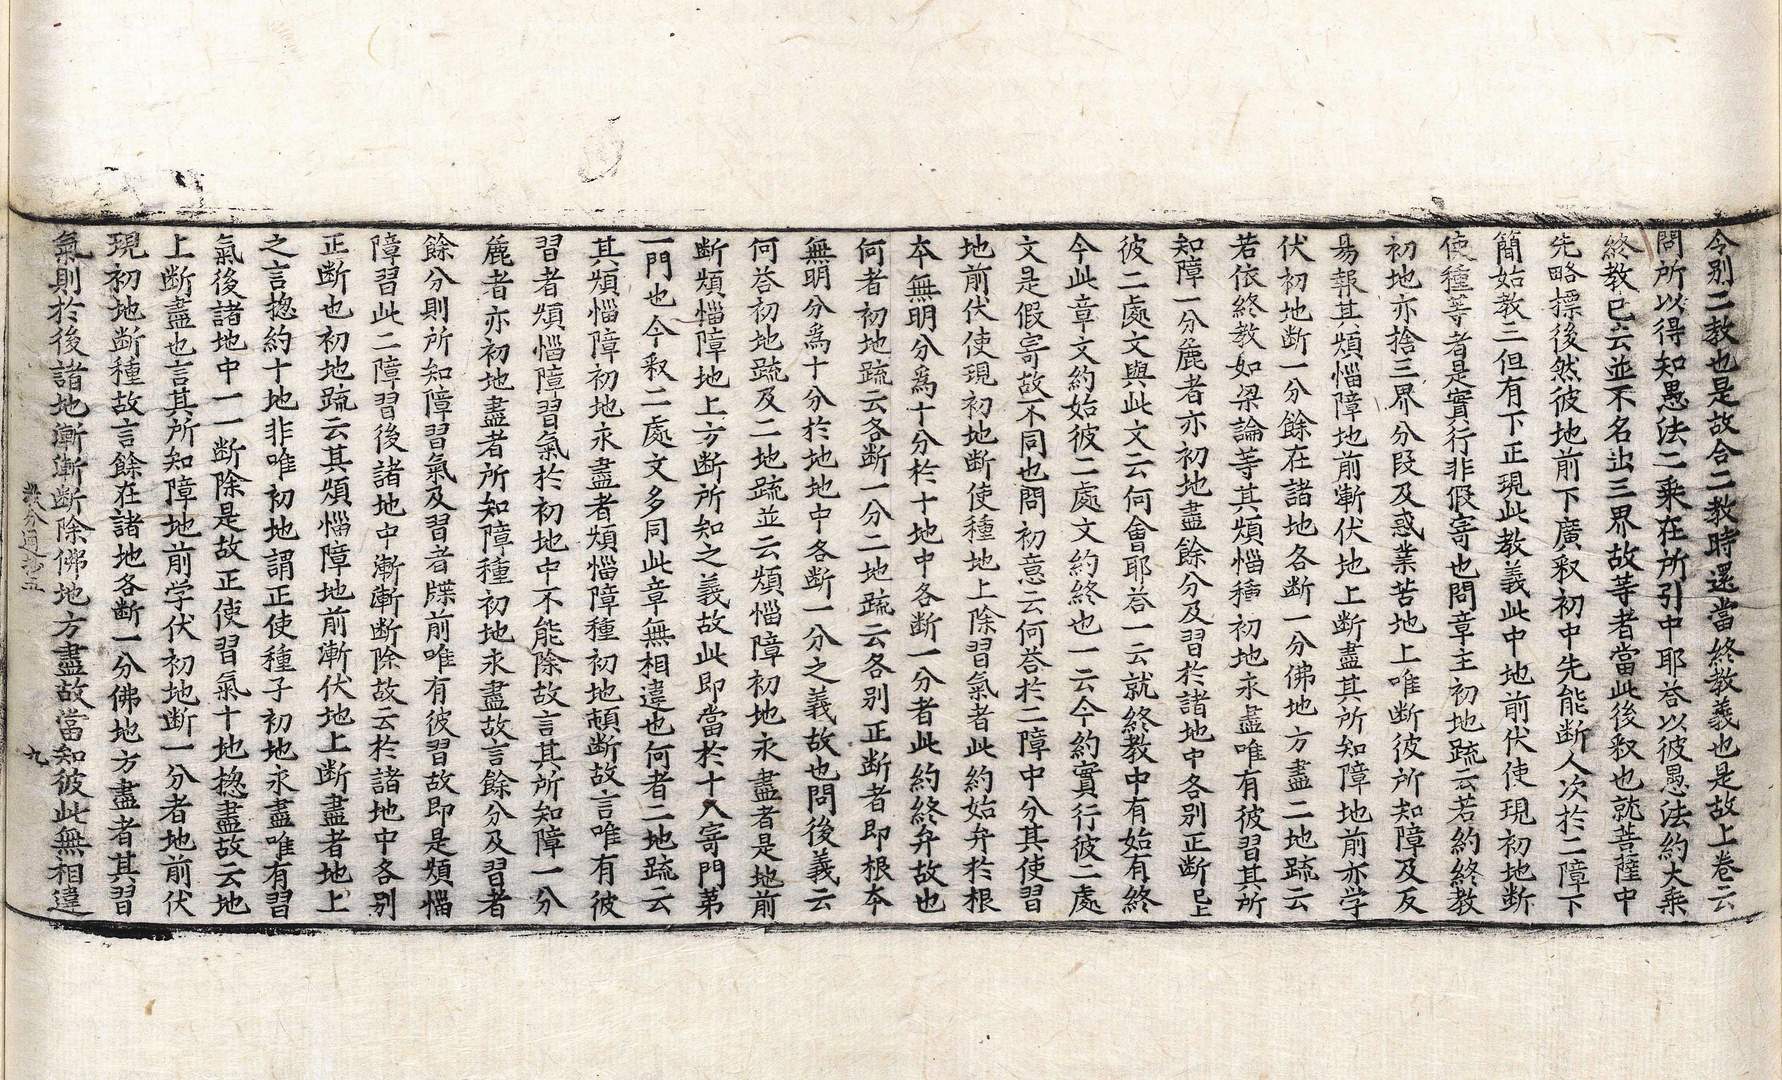 今別二教也是故合二教時還當終教義也是故上卷云
問所以得知愚法二乘在所引中耶荅以彼愚法約大乘
終教已去並不名出三界故等者當此後釈也就菩薩中
先略摽後然彼地前下廣釈初中先能断人次於二障下
簡始教三但有下正現此教義此中地前伏使現初地断
使種等者是實行非假寄也問章主初地䟽云若約終教
初地亦捨三界分段及惑業苦地上唯断彼所知障及反
昜報其煩惱障地前漸伏地上断盡其所知障地前亦学
伏初地断一分餘在諸地各断一分佛地方盡二地䟽云
若依終教如梁論等其煩惱種初地永盡唯有彼習其所
知障一分麁者亦初地盡餘分及習於諸地中各別正断已上
彼二處文與此文云何會耶荅一云就終教中有始有終
今此章文約始彼二處文約終也一云今約實行彼二處
文是假寄故不同也問初意云何荅於二障中分其使習
地前伏使現初地断使種地上除習氣者此約始弁於根
本無明分爲十分於十地中各断一分者此約終弁故也
何者初地䟽云各断一分二地䟽云各別正断者即根本
無明分爲十分於地地中各断一分之義故也問後義云
何荅初地䟽及二地䟽並云煩惱障初地永盡者是地前
断煩惱障地上方断所知之義故此即當於十入寄門第
一門也今釈二處文多同此章無相違也何者二地䟽云
其煩惱障初地永盡者煩惱障種初地頓断故言唯有彼
習者煩惱障習氣於初地中不能除故言其所知障一分
麁者亦初地盡者所知障種初地永盡故言餘分及習者
餘分則所知障習氣及習者牒前唯有彼習故即是煩惱
障習此二障習後諸地中漸漸断除故云於諸地中各別
正断也初地䟽云其煩惱障地前漸伏地上断盡者地上
之言揔約十地非唯初地謂正使種子初地永盡唯有習
氣後諸地中一一断除是故正使習氣十地揔盡故云地
上断盡也言其所知障地前学伏初地断一分者地前伏
現初地断種故言餘在諸地各断一分佛地方盡者其習
氣則於後諸地漸漸断除佛地方盡故當知彼此無相違
九